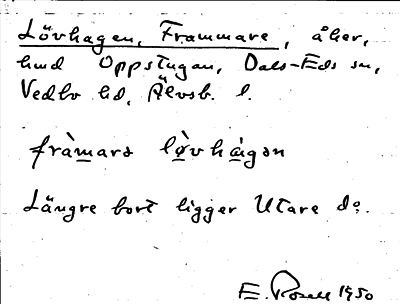 Lövhagen, Frammare, åker,
hmd Oppstugan, Dals-Eds sn,
Vedbo hd, Älvsb. l.
fràmarə lø̀vhàgən
Längre bort ligger Utare do.
E. Rosell 1950